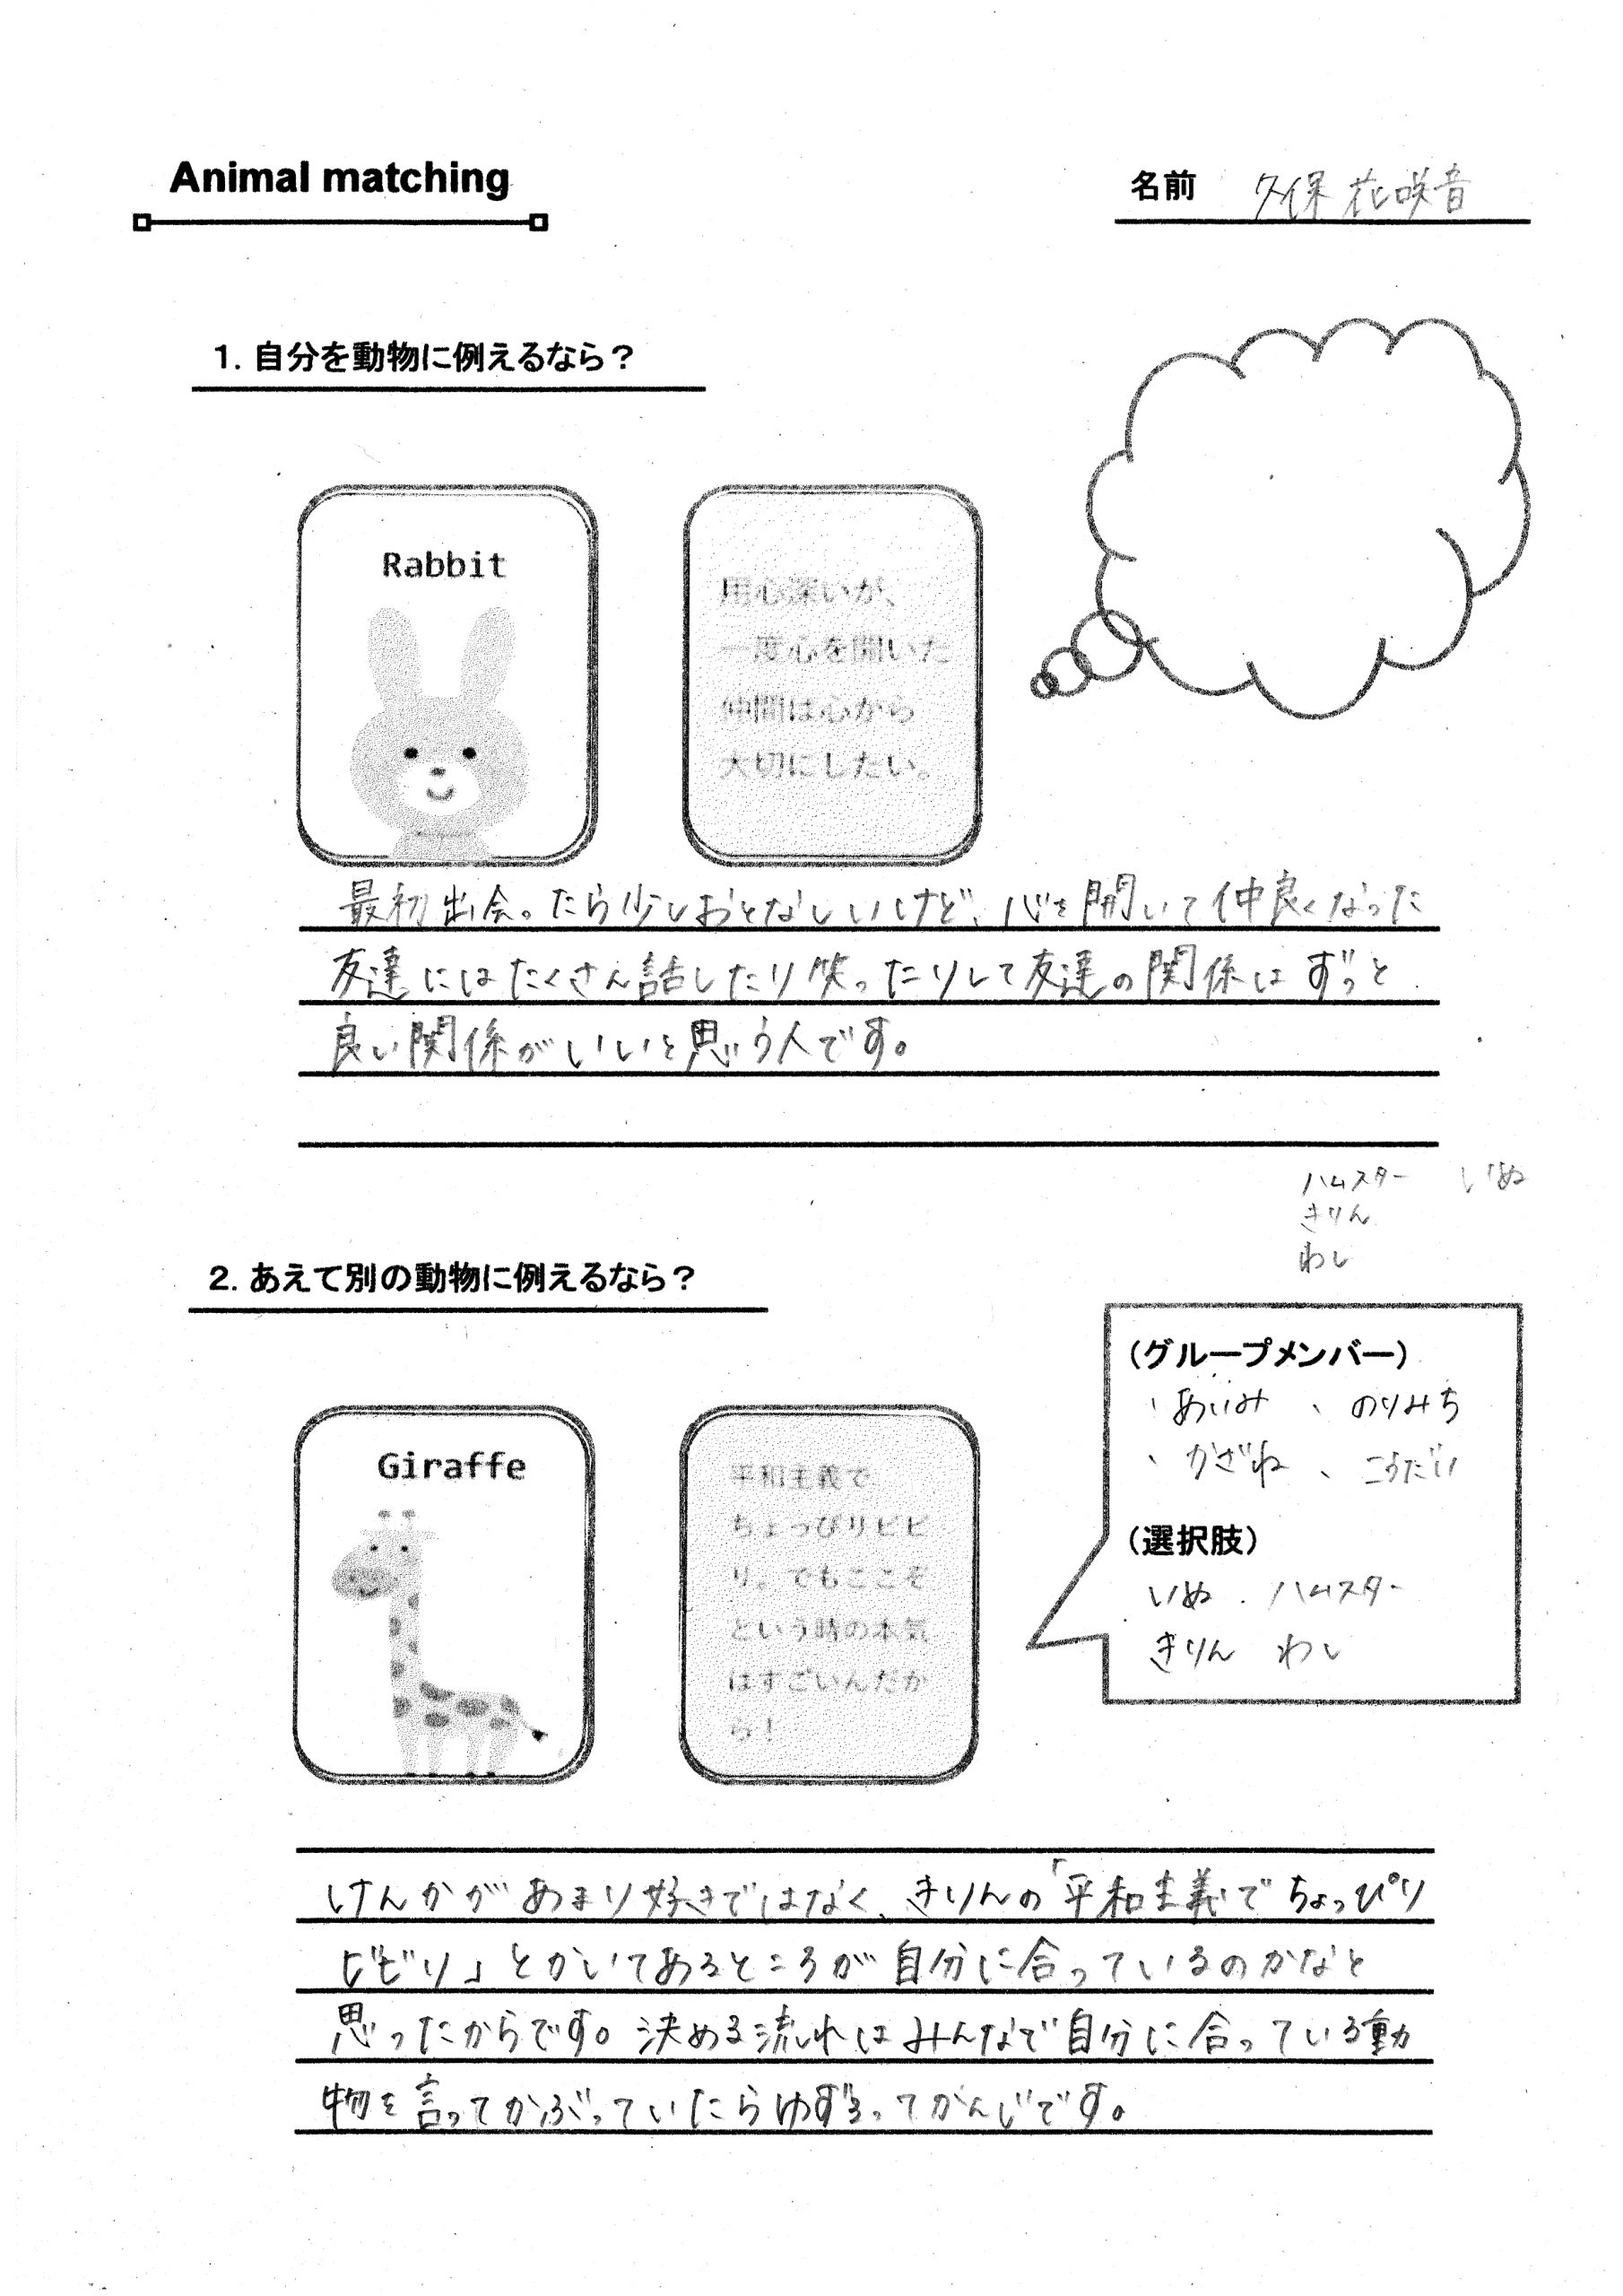 Animal matching
名前 久保 花咲音
1. 自分を動物に例えるなら？
Rabbit
用心深いが、
一度心を開いた
仲間は心から
大切にしたい。
最初出会ったら少しおとなしいけど、心を開いて仲良くなった
友達にはたくさん話したり笑ったりして友達の関係はずっと
良い関係がいいと思う人です。
ハムスター いぬ
きりん
わし
2. あえて別の動物に例えるなら？
Giraffe
平和主義で
ちょっぴりビビ
り。でもここぞ
という時の本気
はすごいんだか
ら！
（グループメンバー）
、あいみ 、のりみち
、かざね 、こうだい
（選択肢）
いぬ . ハムスター
きりん わし
けんかがあまり好きではなく、きりんの「平和主義でちょっぴり
ビビリ」とかいてあるところが自分に合っているのかなと
思ったからです。決める流れはみんなで自分に合っている動
物を言ってかぶっていたらゆずるってかんじです。